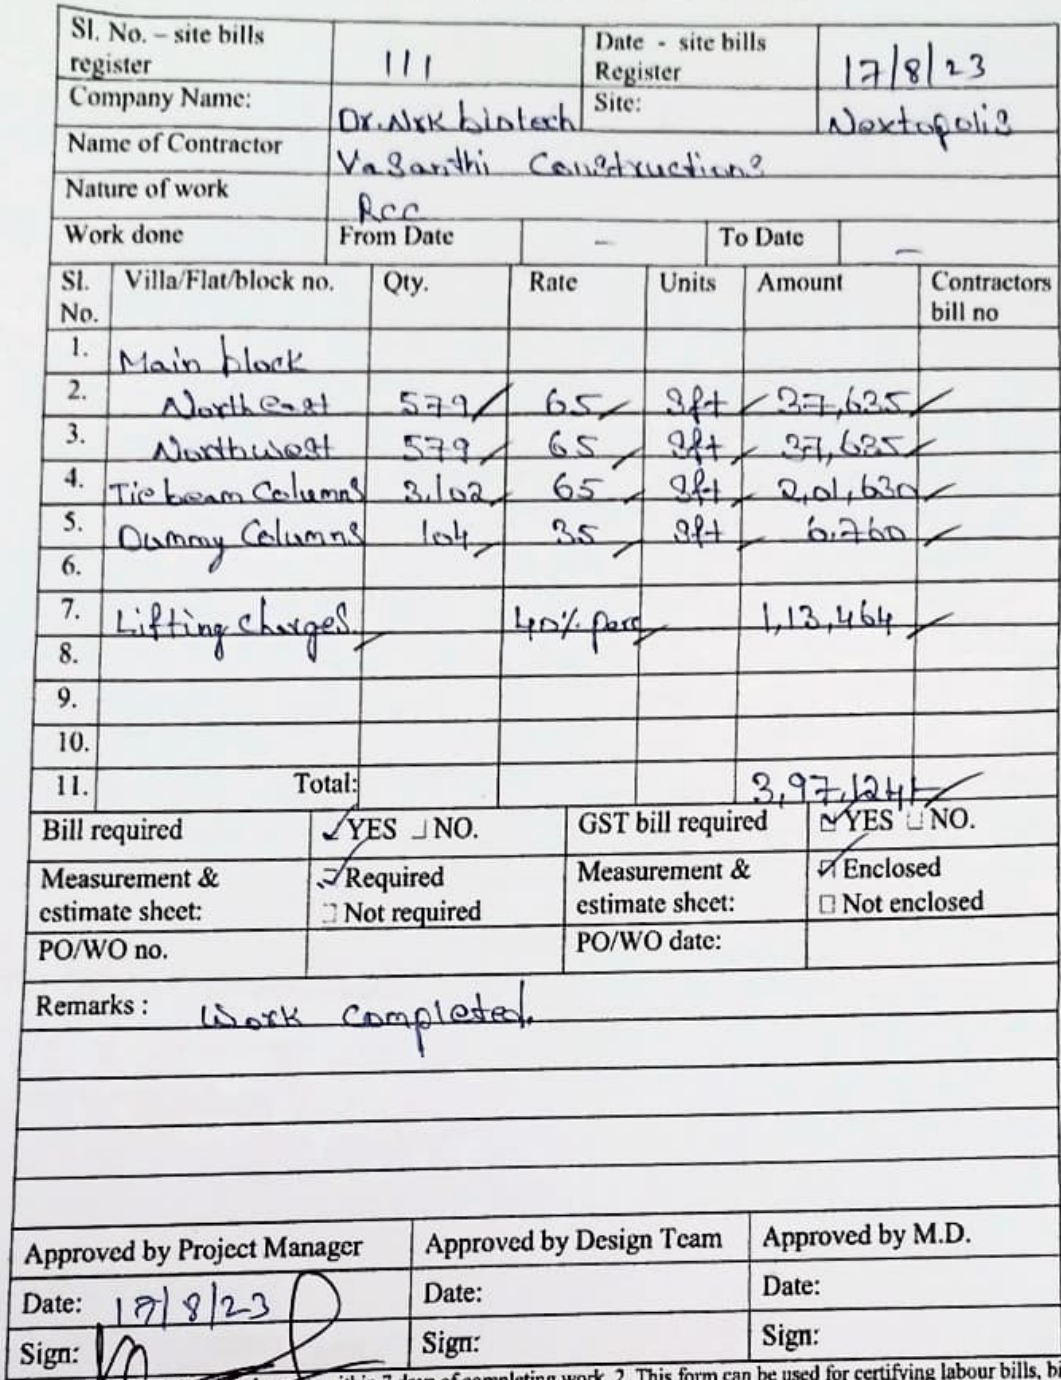 Sl. No. – site bills register 111 Date - site bills Register 17/8/23
Company Name: Dr. Nrk biotech Site: Nextopolis
Name of Contractor Vasanthi Constructions
Nature of work Rcc
Work done From Date – To Date –
Sl. No. Villa/Flat/block no. Qty. Rate Units Amount Contractors bill no
1. Main block
2. North east 579 65 sft 37,635
3. Northwest 579 65 sft 37,635
4. Tie beam Columns 3,102 65 sft 2,01,630
5. Dummy Columns 104 35 sft 6,760
6.
7. Lifting charges. 40% 1,13,464
8.
9.
10.
11. Total: 3,97,124/-
Bill required YES NO. GST bill required YES NO.
Measurement & estimate sheet: Required Not required Measurement & estimate sheet: Enclosed Not enclosed
PO/WO no. PO/WO date:
Remarks : Work completed.
Approved by Project Manager Approved by Design Team Approved by M.D.
Date: 17/8/23 Date: Date:
Sign: Sign: Sign:
7 days of completing work. 2. This form can be used for certifying labour bills,